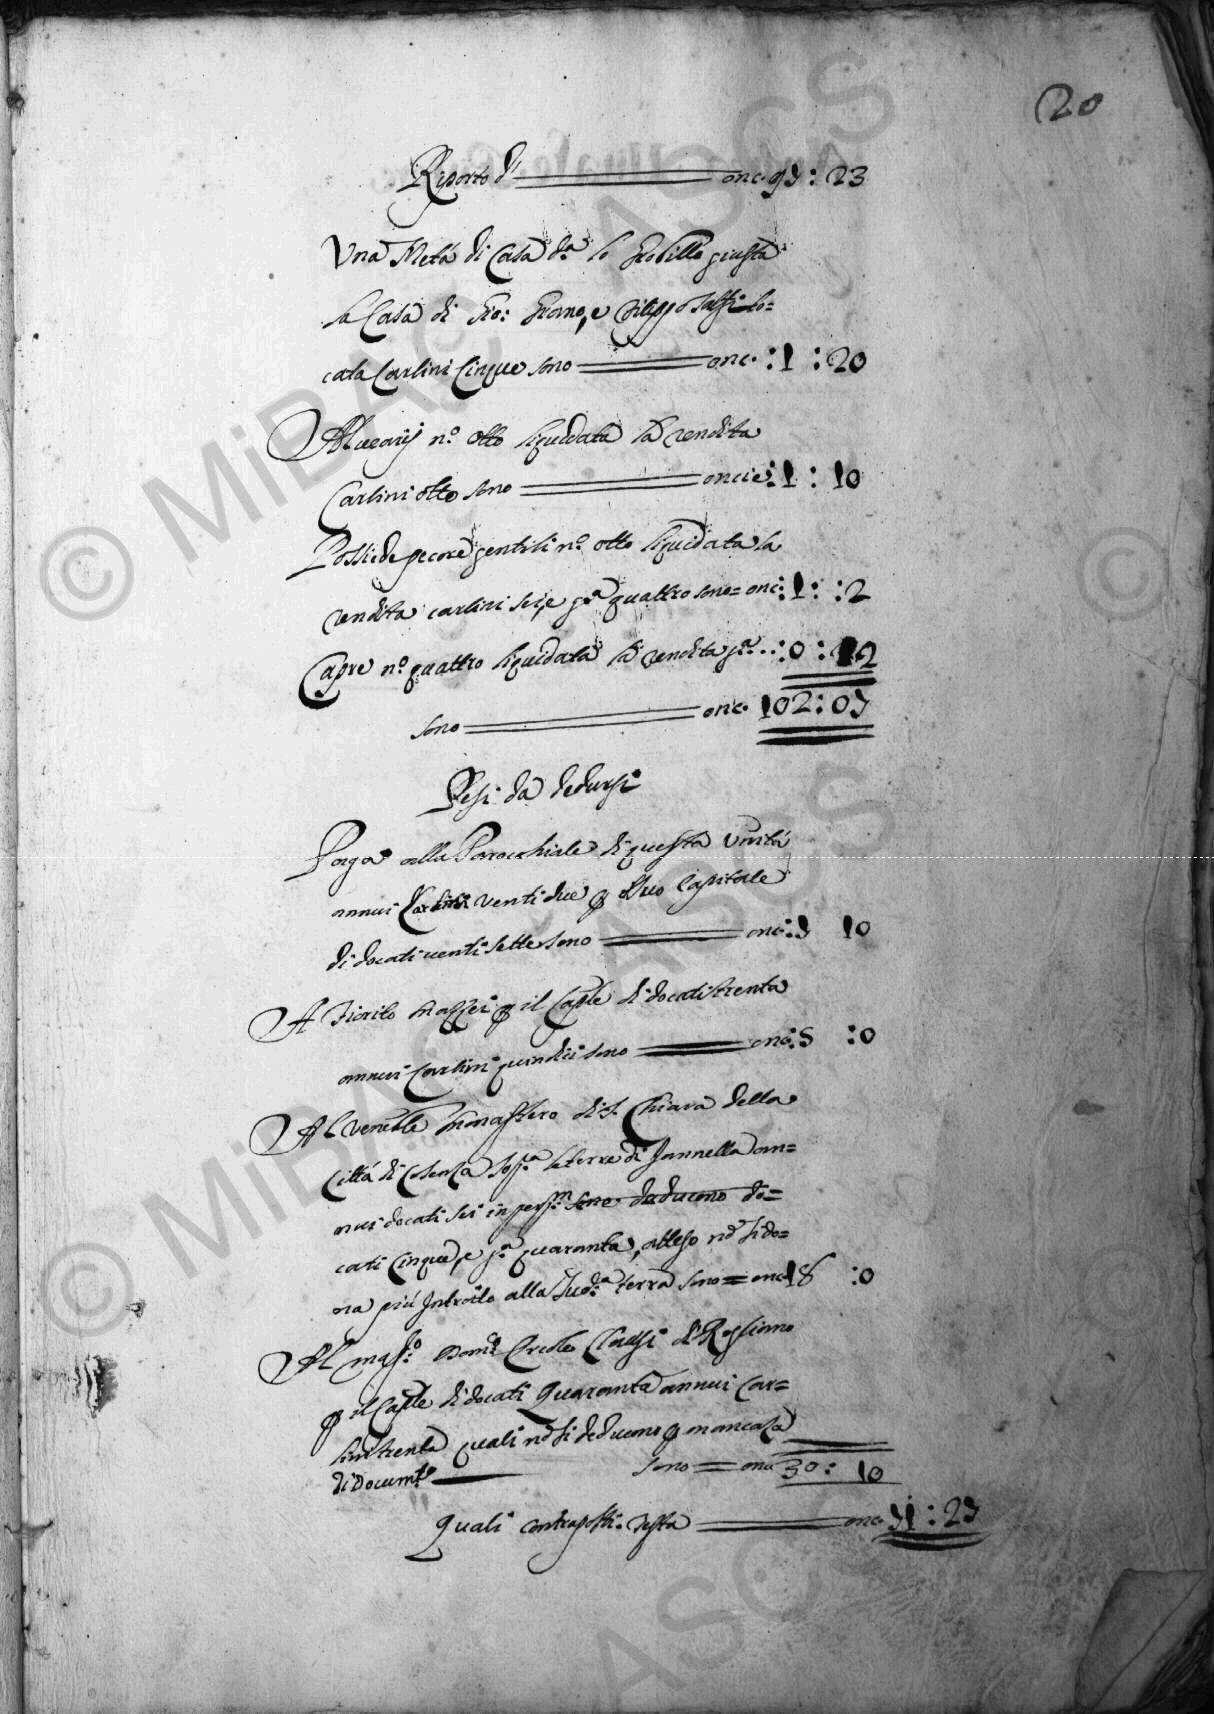 20
Riporto d' onc. 97 : 23
Una Metá di Casa d.a lo giusta
la Casa di Gio: e Filippo lo=
cata Carlini Cinque sono onc. : 1 : 20
Alvearij n.o otto liquidata la rendita
Carlini otto sono oncie : 1 : 10
Possiede pecore gentili n.o otto liquidata la
rendita carlini sei, e g.a quattro sono = onc : 1 : : 2
Capre n.o quattro liquidata la rendita g.a .. : 0 : 12
sono onc. 102 : 07
Pesi da dedursi
Paga alla Parocchiale di questa Unitá
annui Carlini venti due p suo Capitale
di docati venti sette sono onc : 7 10
A Fiorito Mazzei p il Caple di docati trenta
annui Carlini quindici sono onc : 5 : 0
Al Venēble Monastero di S. Chiara della
Cittá di Cosenza sop.a le terre di Jannella an=
nui docati sei in sono deducono do=
cati Cinque, e g.a quaranta, atteso nō si do=
na piú Introito alla Sud.a terra sono = onc 18 : 0
Al mag.o Dom.o Ercole Clausi di Rogliano
p il Caple di docati Quaranta annui Car=
lini trenta quali nō si deducono p mancaza
di Docum.to sono = onc 30 : 10
Quali contraposti resta onc. 71 : 27
© MiBAC ASCS
© MiBAC ASCS
©
ASCS